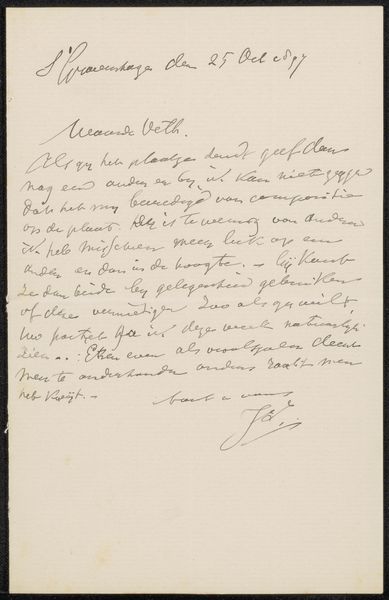 s'Gravenhage den 25 Oct 1897
Waarde Veth.
Als gij het plaatje deugt geef dan
nog een ander en bij ik kan niet zeggen
dat het mij bevredigd van compositie
op de plaat. is te weinig van
ik heb misschien meer luk op een
ander en dan in de hoogte. – Gij kunt
ze dan beide bij gelegenheid gebruiken
of deze vernietigen zoo als gij wilt.
Uw portret ik dezer week natuurlijk
zien ..: Etsen even als vioolspelen dient
men te onderhouden anders raakt men
het kwijt. –
van